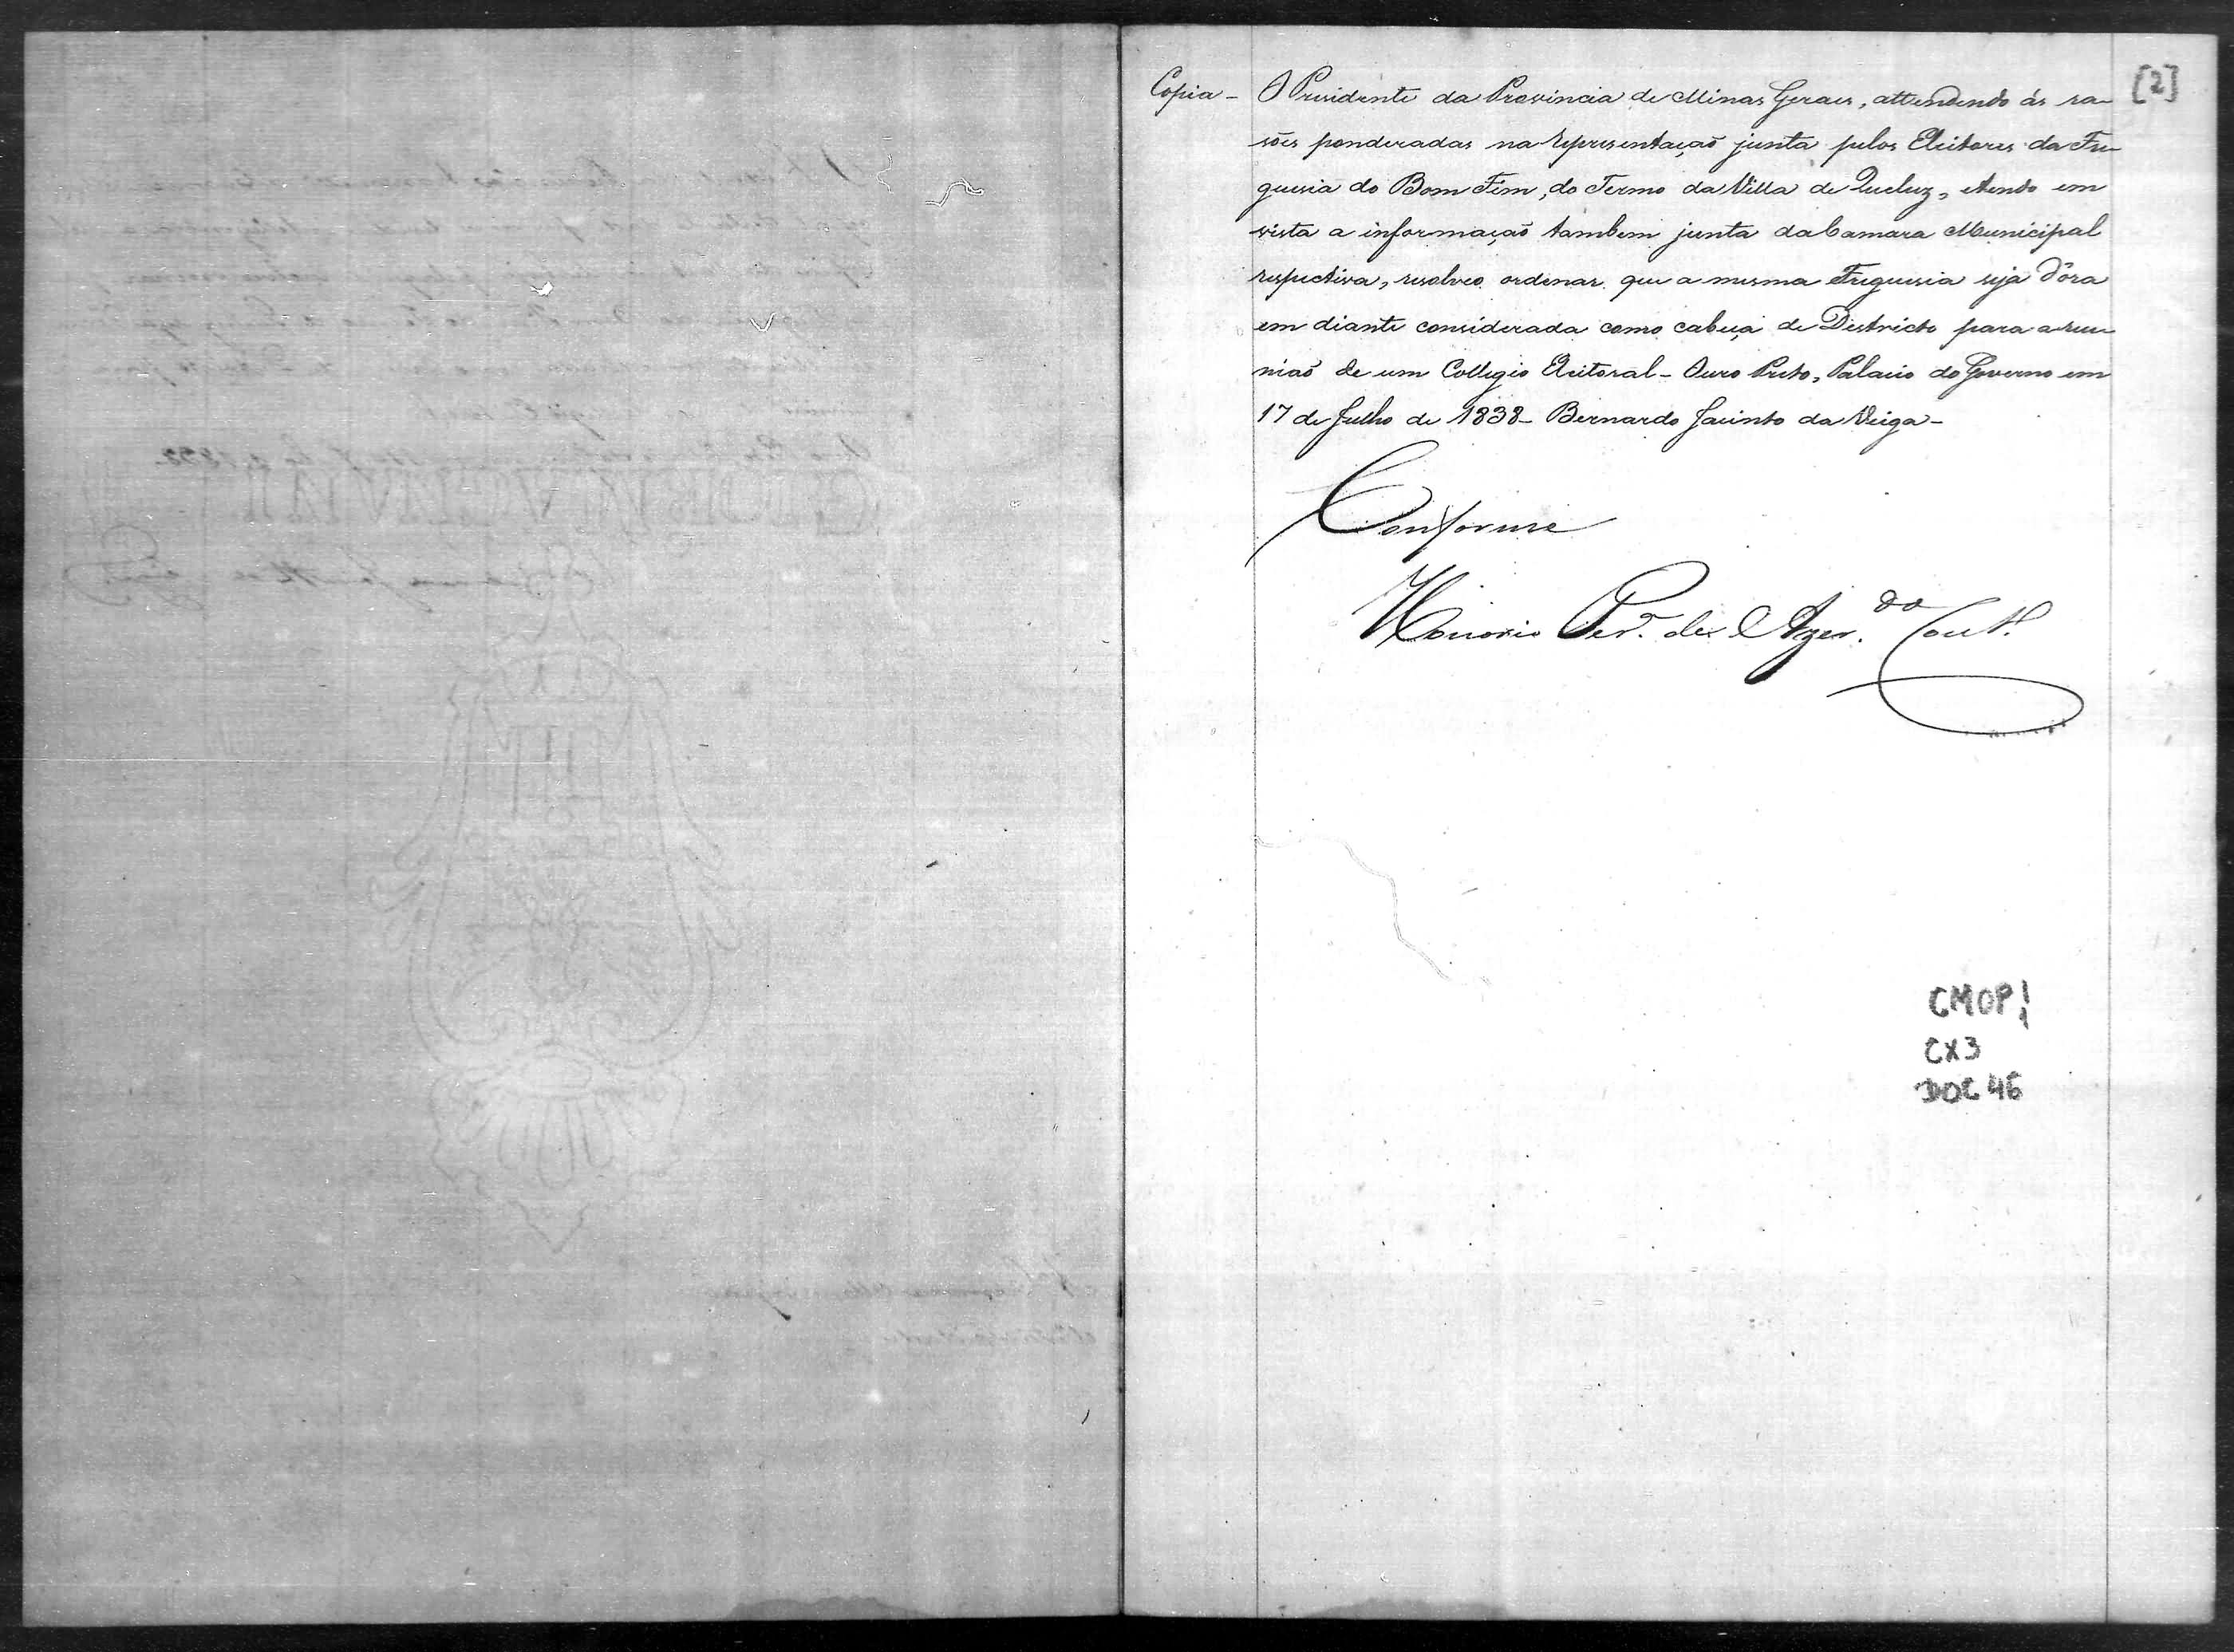 [2]
Copia - O Presidente da Provincia de Minas Geraes, attendendo ás ra-
sões ponderadas na representação junta pelos Eleitores da Fre-
guesia do Bom Fim, do Termo da Villa de Queluz, etendo em
vista a informação tambem junta da Camara Municipal
respectiva, resolveo ordenar que a mesma Freguesia seja d'óra
em diante considerada como cabeça de Districto para a reu-
nião de um Collegio Eleitoral - Ouro Preto, Palacio do Governo em
17 de Julho de 1838 - Bernardo Jacinto da Veiga -
Conforme
Honorio Per.ª de Azer.do Cout.º
CMOP
CX3
DOC 46